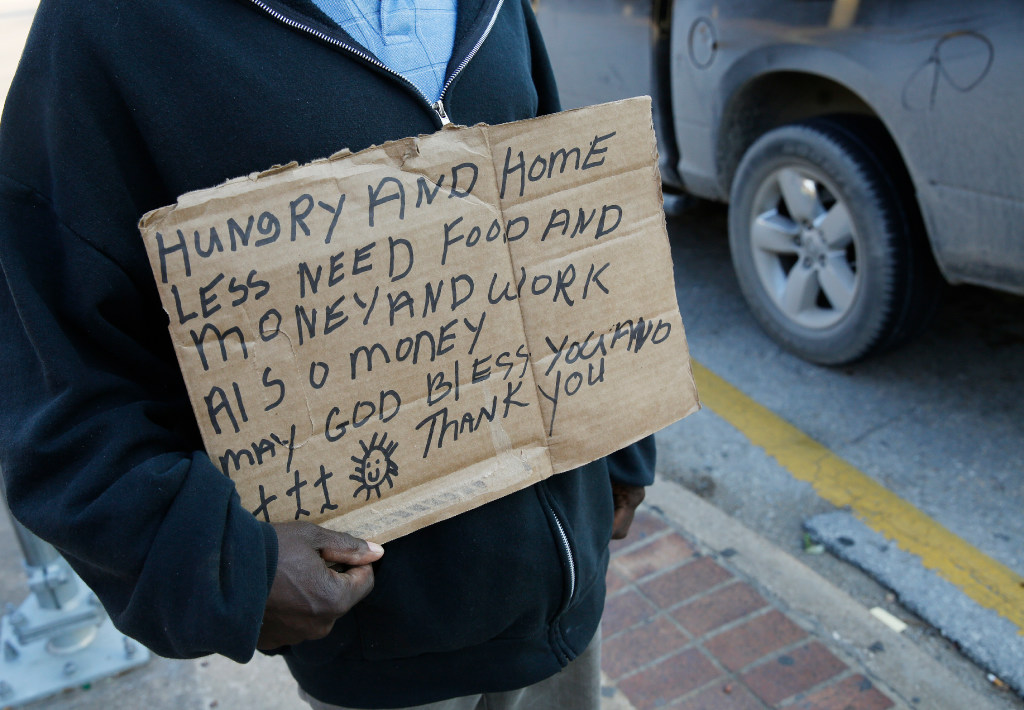 HUNgRY AND HOME
LESS NEED FOOD AND
MONEY AND WORK
AlSO MONEY
MAY GOD BlESS YOU AND
THANK YOU